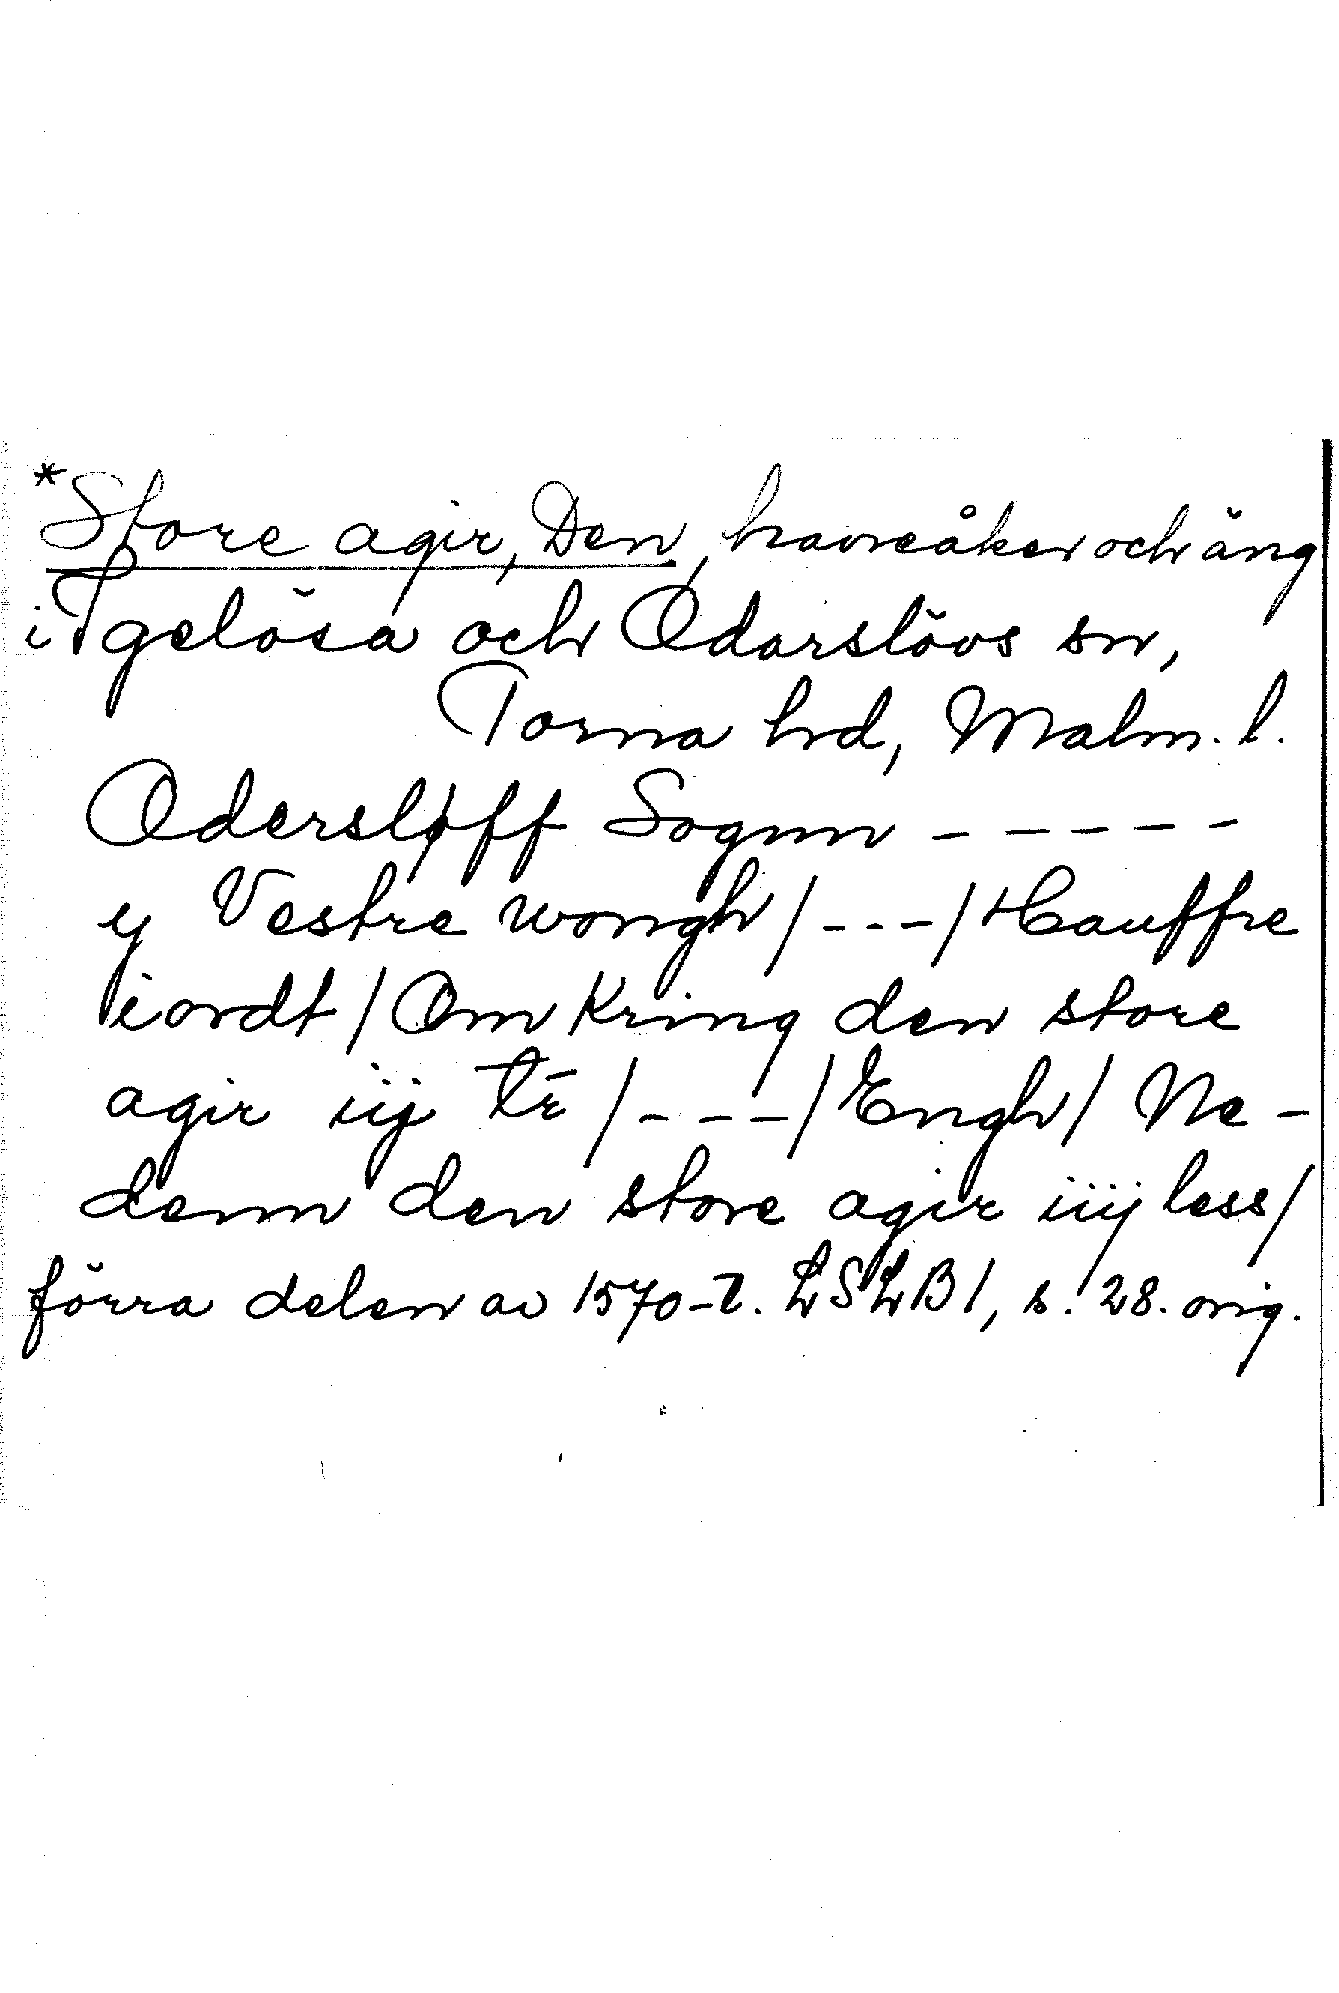 *Store agir, Den, havreåker och äng
i Igelösa och Odarslövs sn,
Torna hd, Malm. l.
Odersløff Sognn - - - - -
y Vestre wongh / - - - / Hauffre
iordt / Om kring den store
agir iij tr̄ / - - - / Engh / Ne-
denn den store agir iiij less /
förra delen av 1570-t. LSLB 1, s. 28. orig.